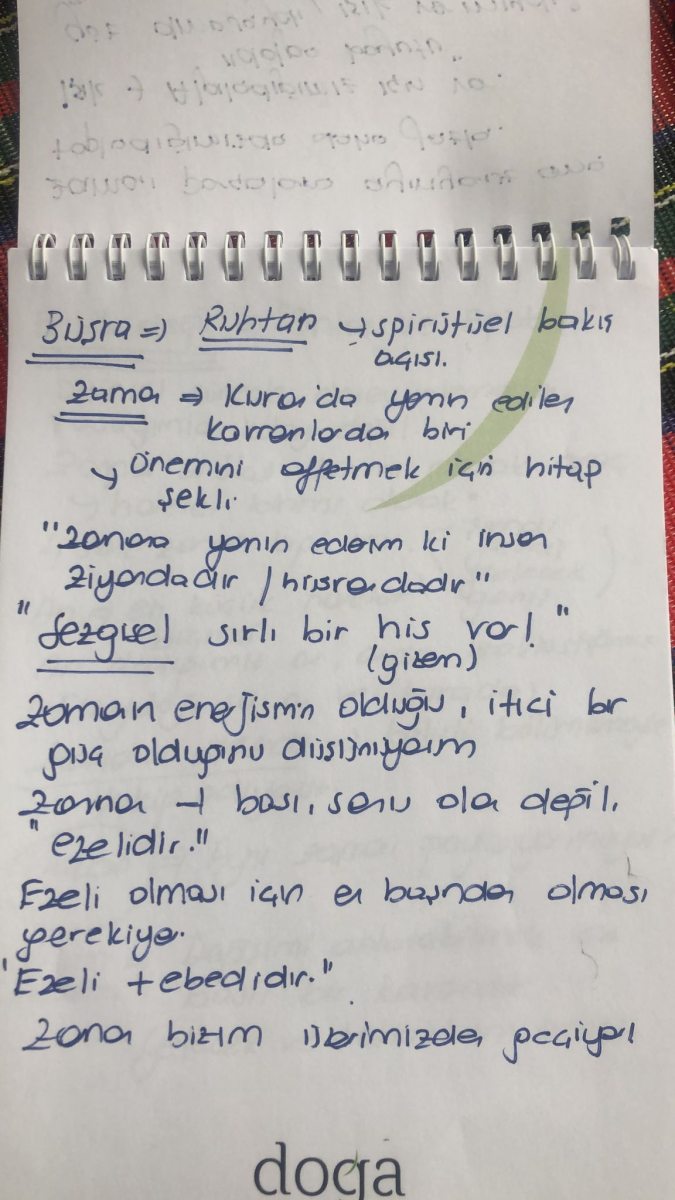 Büşra => Ruhtan → spiritüel bakış
açısı.
Zaman => Kuran'da yemin edilen
kavramlardan biri
→ önemini affetmek için hitap
şekli.
"Zamana yemin ederim ki insan
ziyandadır / hüsrandadır"
"Sezgisel sırlı bir his var!"
(gizem)
Zaman enerjisinin olduğu, itici bir
güç olduğunu düşünüyorum
Zaman → başı, sonu olan değil,
"ezelidir."
Ezeli olması için en başından olması
gerekiyor.
"Ezeli + ebedidir."
Zaman bizim üzerimizden geçiyor!
doğa